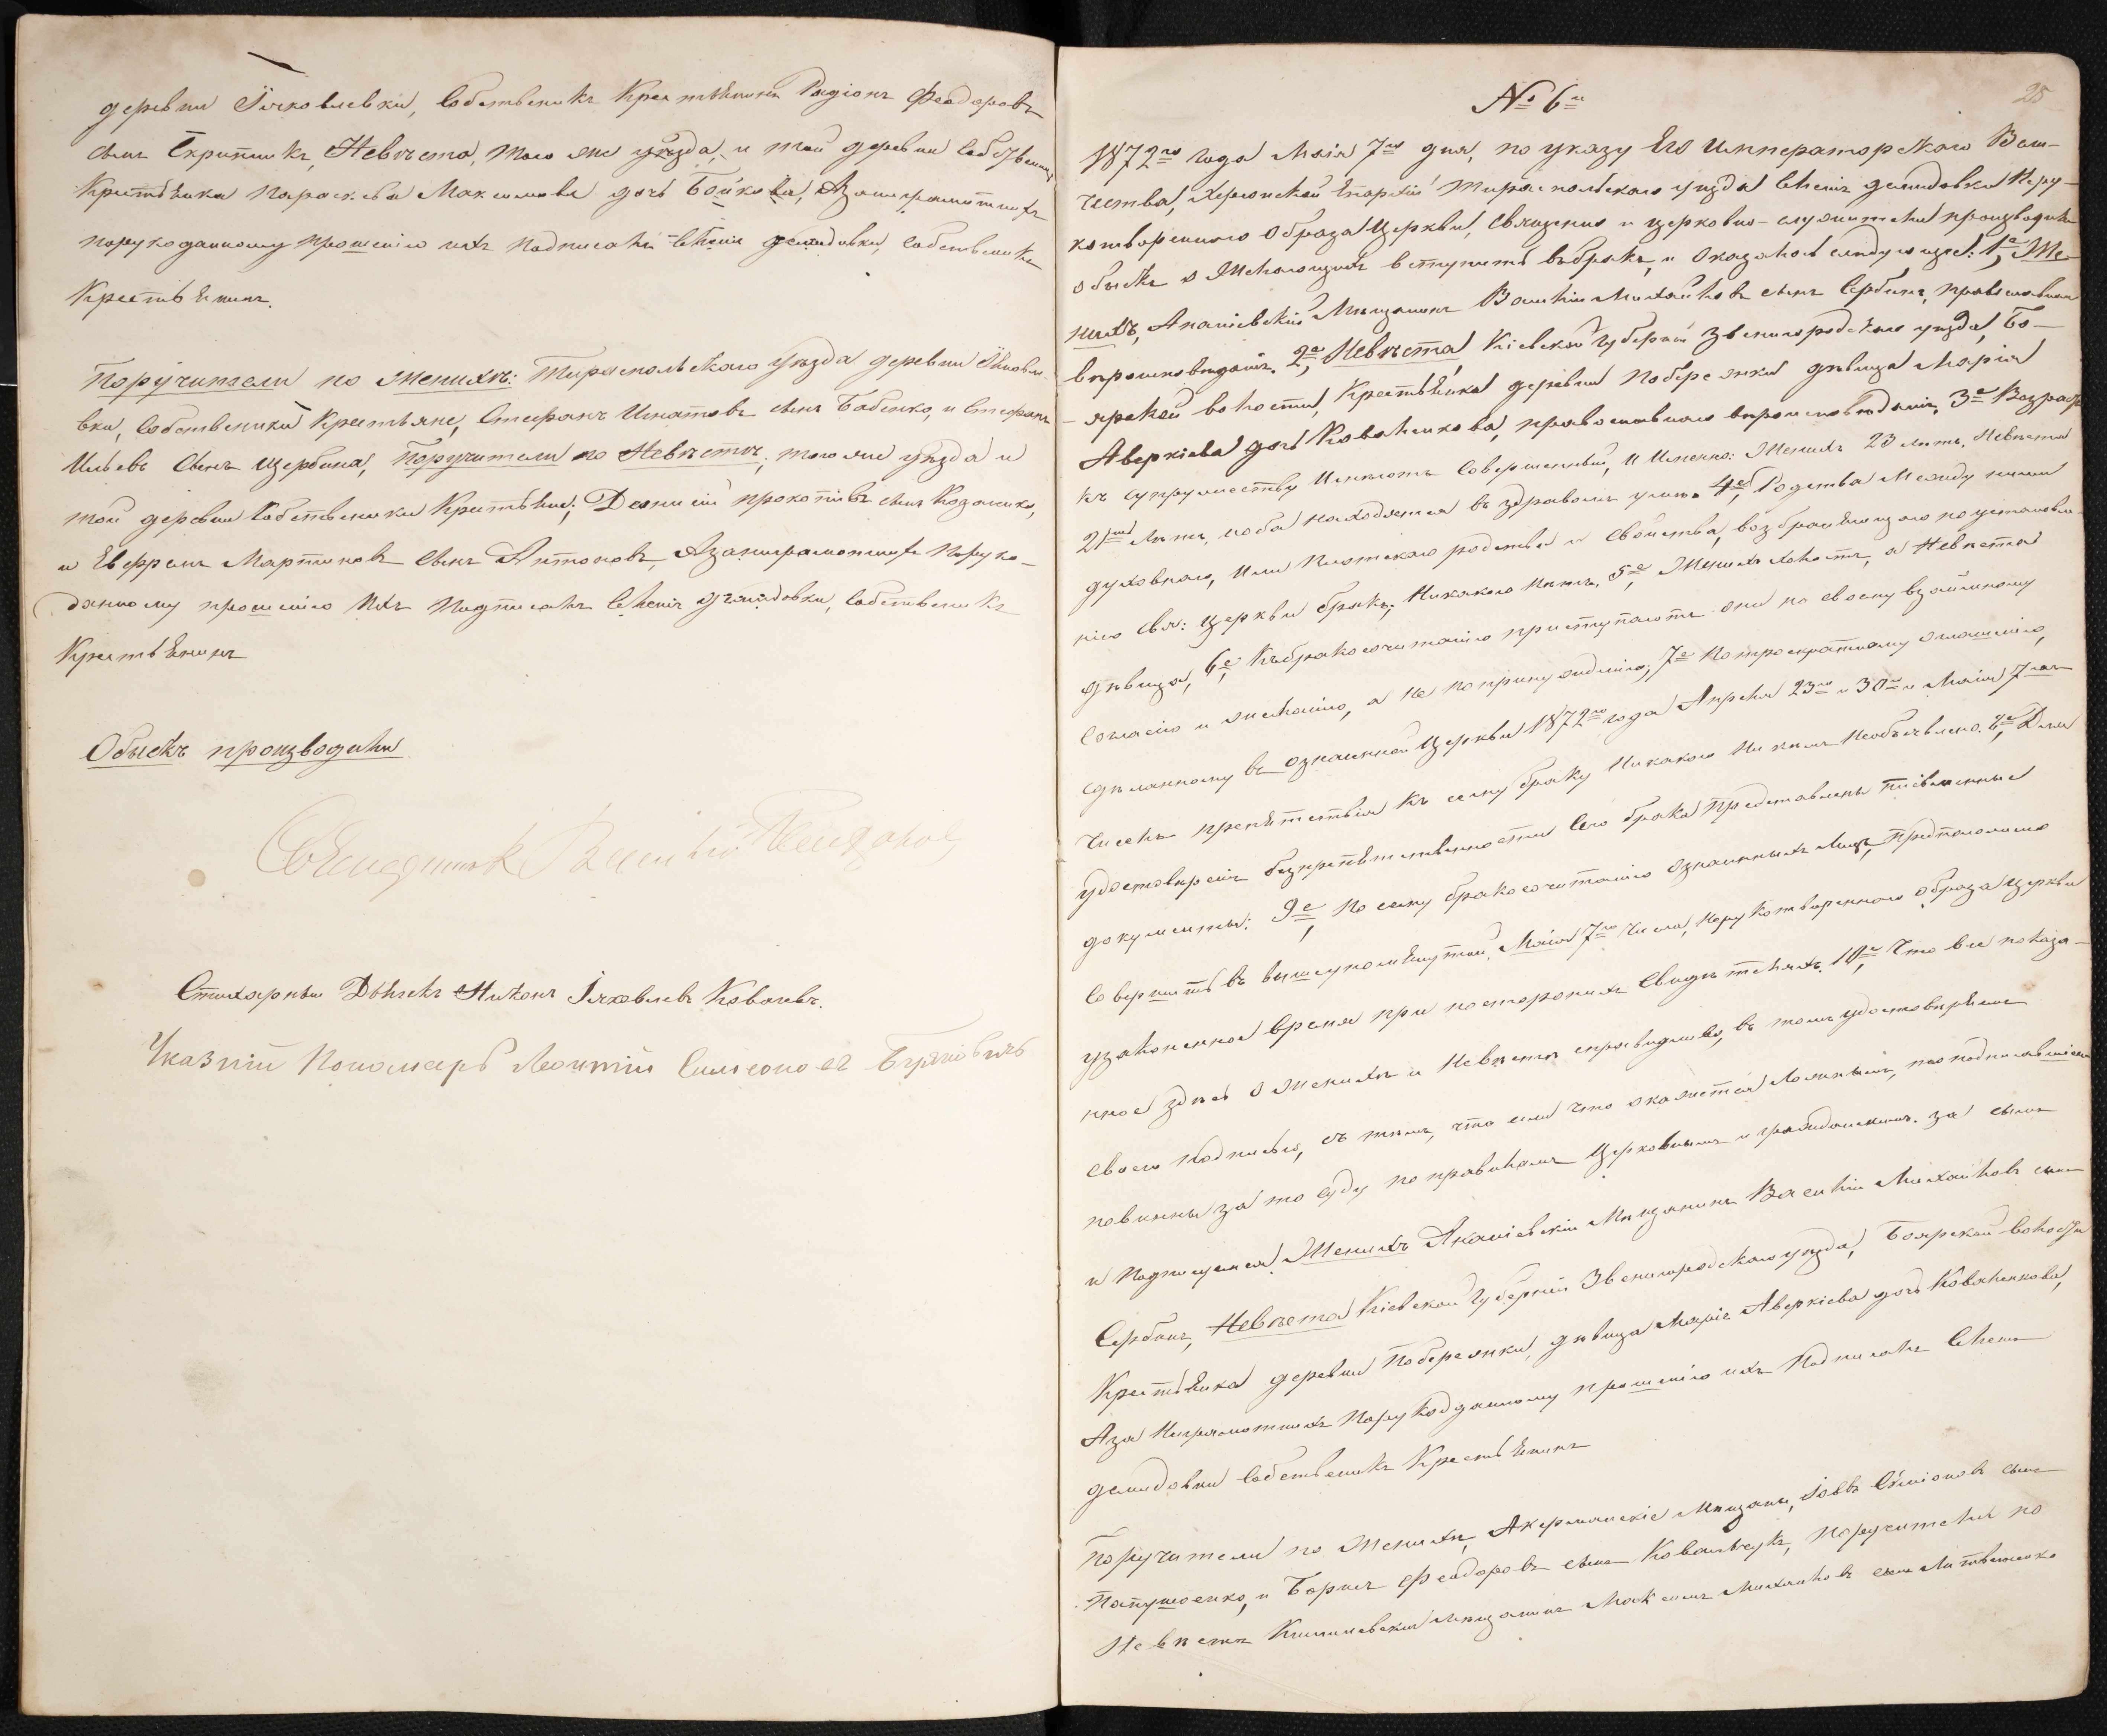 деревни Іяковлевки, собственикъ Крестьянинъ Радіонъ Феодоровъ
сынъ Скрипникъ, Невѣста, того же уѣзда, и той деревни собственика
Крестьянка Параскева Максимова дочь Бойкова, Азанеграмотныхъ
порукоданному прошенію ихъ подписалъ села демидовки, собственикъ
Крестьянинъ.
Поручители по Женихѣ: Тираспольскаго Уѣзда деревни Іяковле-
вки, собственики Крестьяне, Стефанъ Игнатовъ сынъ Бабенко, и Стефанъ
Ильевъ сынъ щербина, Поручители по Невѣсте, того же уѣзда и
той деревни собственики Крестьяне; Деонисій прокопіевъ сынъ Козаченко,
и Евфремъ Мартиновъ сынъ Антоновъ, Азанеграмотныхъ поруко-
данному прошенію ихъ подписалъ села демидовки, собственикъ
Крестьянинъ
Обыскъ производили
Священникъ Василій
Стихарный Дьячекъ Никонъ Іяковлевъ Ковалевъ.
Указній Пономарь Леонтій Симеоновъ
25
№ 6й
1872го года Маія 7го дня, по указу Его Императорскаго Вели-
чества, Херсонской Епархіи Тираспольскаго уѣзда села демидовки Неру-
котвореннаго образа Церкви, священно и церковно-служители производили
обыскъ о желающихъ вступить въ бракъ, и оказалось следующее: 1е, Же-
нихъ, Ананіевскій Мѣщанинъ Василій Михайловъ сынъ Сербинъ, православнаго
вѣроисповѣданія. 2е, Невѣста Кіевской губерніи Звенигородскаго уѣзда, Бо-
ярской волости, Крестьянка деревни Побережки дѣвица Марія
Аверкіева дочь Коваленкова, православнаго вѣроисповѣданія, 3е Возрастъ
къ супружеству Имѣютъ совершенный, и Именно: Женихъ 23 лѣтъ, Невѣста
21 лѣтъ, и оба находятся въ здравомъ умѣ. 4е, Родства Между ними
духовнаго, или Плотскаго родства и свойства, возбраняющаго поустановле-
нію свя: Церкви бракъ, Никакого нѣтъ. 5е, Женихъ холостъ, а Невѣста
дѣвица, 6е, Къ бракосочитанію приступаютъ они по своему взаимному
согласію и желанію, а не попринужденію, 7е По троекратному оглашенію,
сдѣланному въ означенной Церкви 1872го года Апреля 23го и 30го и Маія 7го
числъ препятствія къ сему браку Никакого Ни кемъ Необъявлено. 8е, Для
удостовѣренія безпрепятственности сего брака Представлены писменные
документы: 9е, По сему бракосочитанію означенныхъ лицъ, предположено
совершить въ вышеупомянутой, Маія 7го числа, Нерукотвореннаго образа Церкви
узаконенное время при постороннихъ свидѣтеляхъ. 10е, Что все показа-
нное здѣсь о женихѣ и Невѣсте справедливо, въ томъ удостовѣряемъ
своею подписью, съ тѣмъ, что если что окажется ложнымъ, то подписавшіеся
повинны за то суду по правиламъ Церковнымъ и гражданскимъ. за симъ
и подпишемся. Женихъ Ананіевскій Мѣщанинъ Василій Михайловъ сынъ
Сербинъ, Невѣста Кіевской Губерніи Звенигородскаго уѣзда, Боярской волости
Крестьянка деревни Побережки, дѣвица Марія Аверкіева дочь Коваленкова,
Аза Неграмотныхъ порукоданному прошенію ихъ подписалъ Села
демидовки собственикъ Крестьянинъ
Поручители по Женихѣ, Акерманскіе Мѣщаны, Іоввъ Симіоновъ сынъ
Папушенко, и Борисъ Феодоровъ сынъ Ковальчукъ, поручители по
Невѣсте Кишиневскій мѣщанинъ Максимъ Михайловъ сынъ Литвиненко